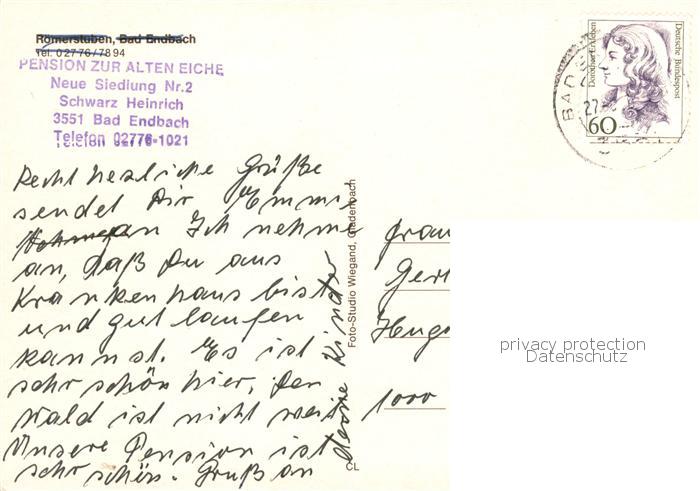 Römerstuben, Bad Endbach
Tel. 02776/7894
PENSION ZUR ALTEN EICHE
Neue Siedlung Nr.2
Schwarz Heinrich
3551 Bad Endbach
Telefon 02776-1021
Recht herzliche Grüße
sendet Dir Emmie
an Ich nehme
an, daß Du aus
Krankenhaus bist
und gut laufen
kannst. Es ist
sehr schön hier, Der
Wald ist nicht weit
Unsere Pension ist
sehr schön. Gruß an
deine Kinder
Foto-Studio Wiegand, Gladenbach
CL
Dorothea Erxleben
Deutsche Bundespost
60
BAD E
27
Frau
Ger
Hugo
1000
privacy protection
Datenschutz